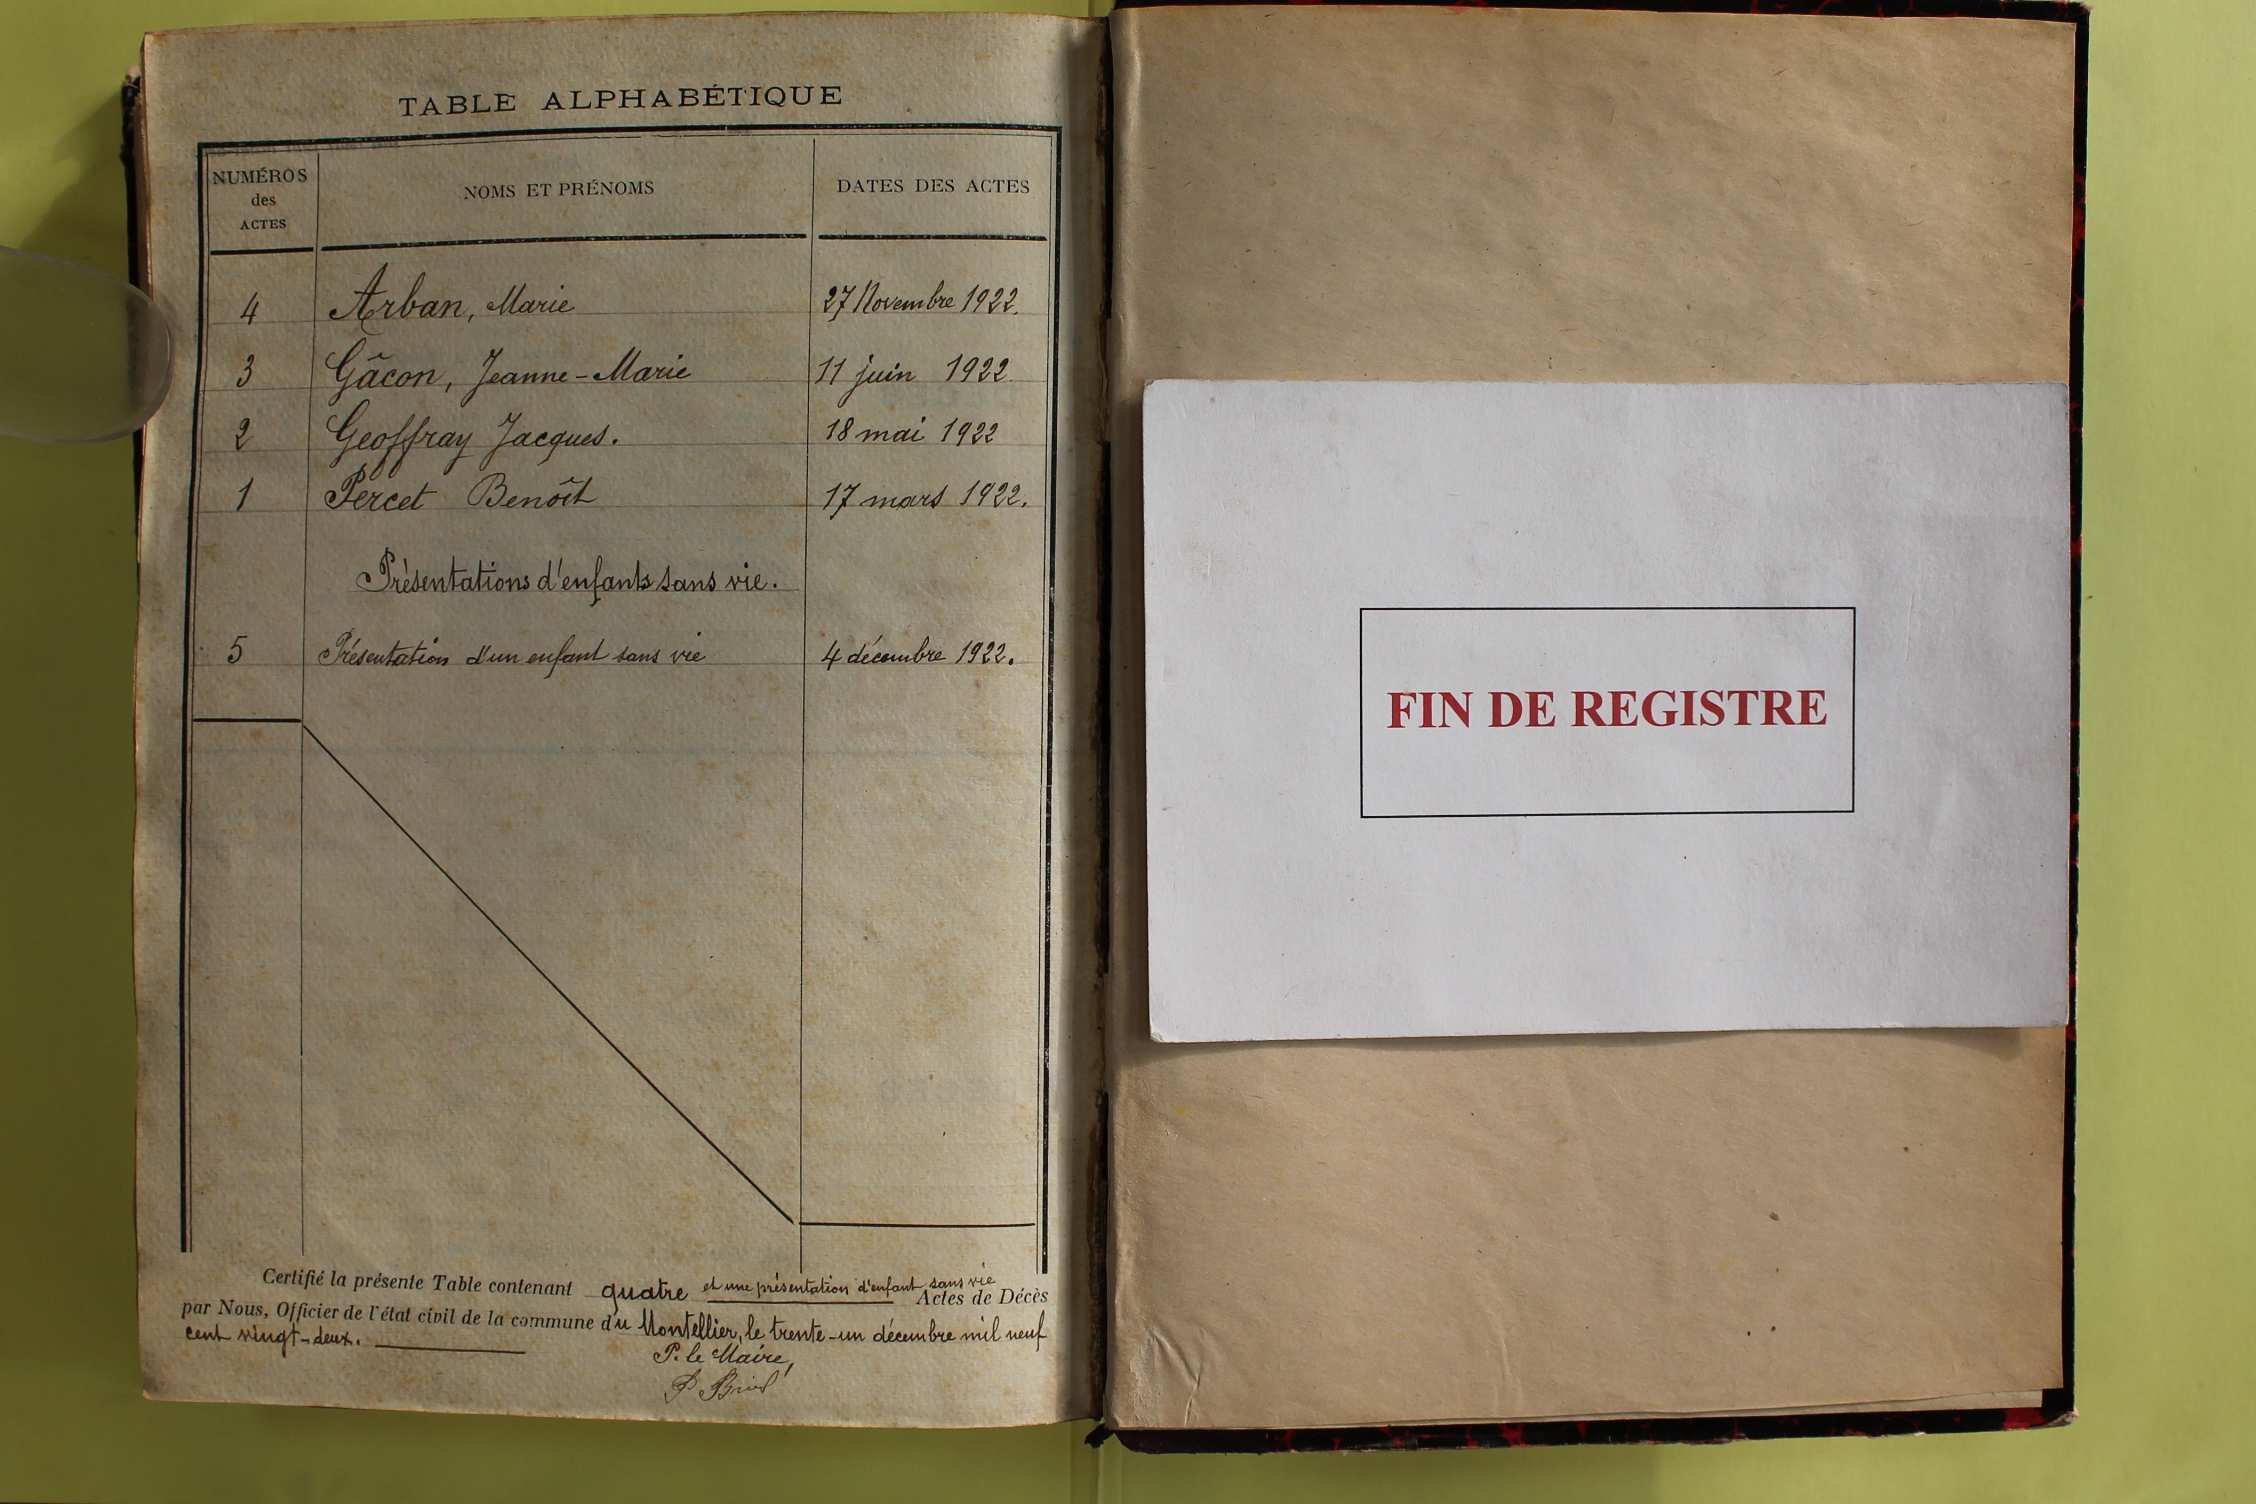 TABLE ALPHABÉTIQUE
NUMÉROS des ACTES NOMS ET PRÉNOMS DATES DES ACTES
4 Arban, Marie 27 Novembre 1922.
3 Gâcon, Jeanne-Marie 11 juin 1922
2 Geoffray Jacques. 18 mai 1922
1 Percet Benoît 17 mars 1922.
Présentations d'enfants sans vie.
5 Présentation d'un enfant sans vie 4 décembre 1922.
Certifié la présente Table contenant quatre et une présentation d'enfant sans vie Actes de Décès
par Nous, Officier de l'état civil de la commune du Montellier, le trente-un décembre mil neuf
cent vingt-deux.
P. le Maire,
FIN DE REGISTRE